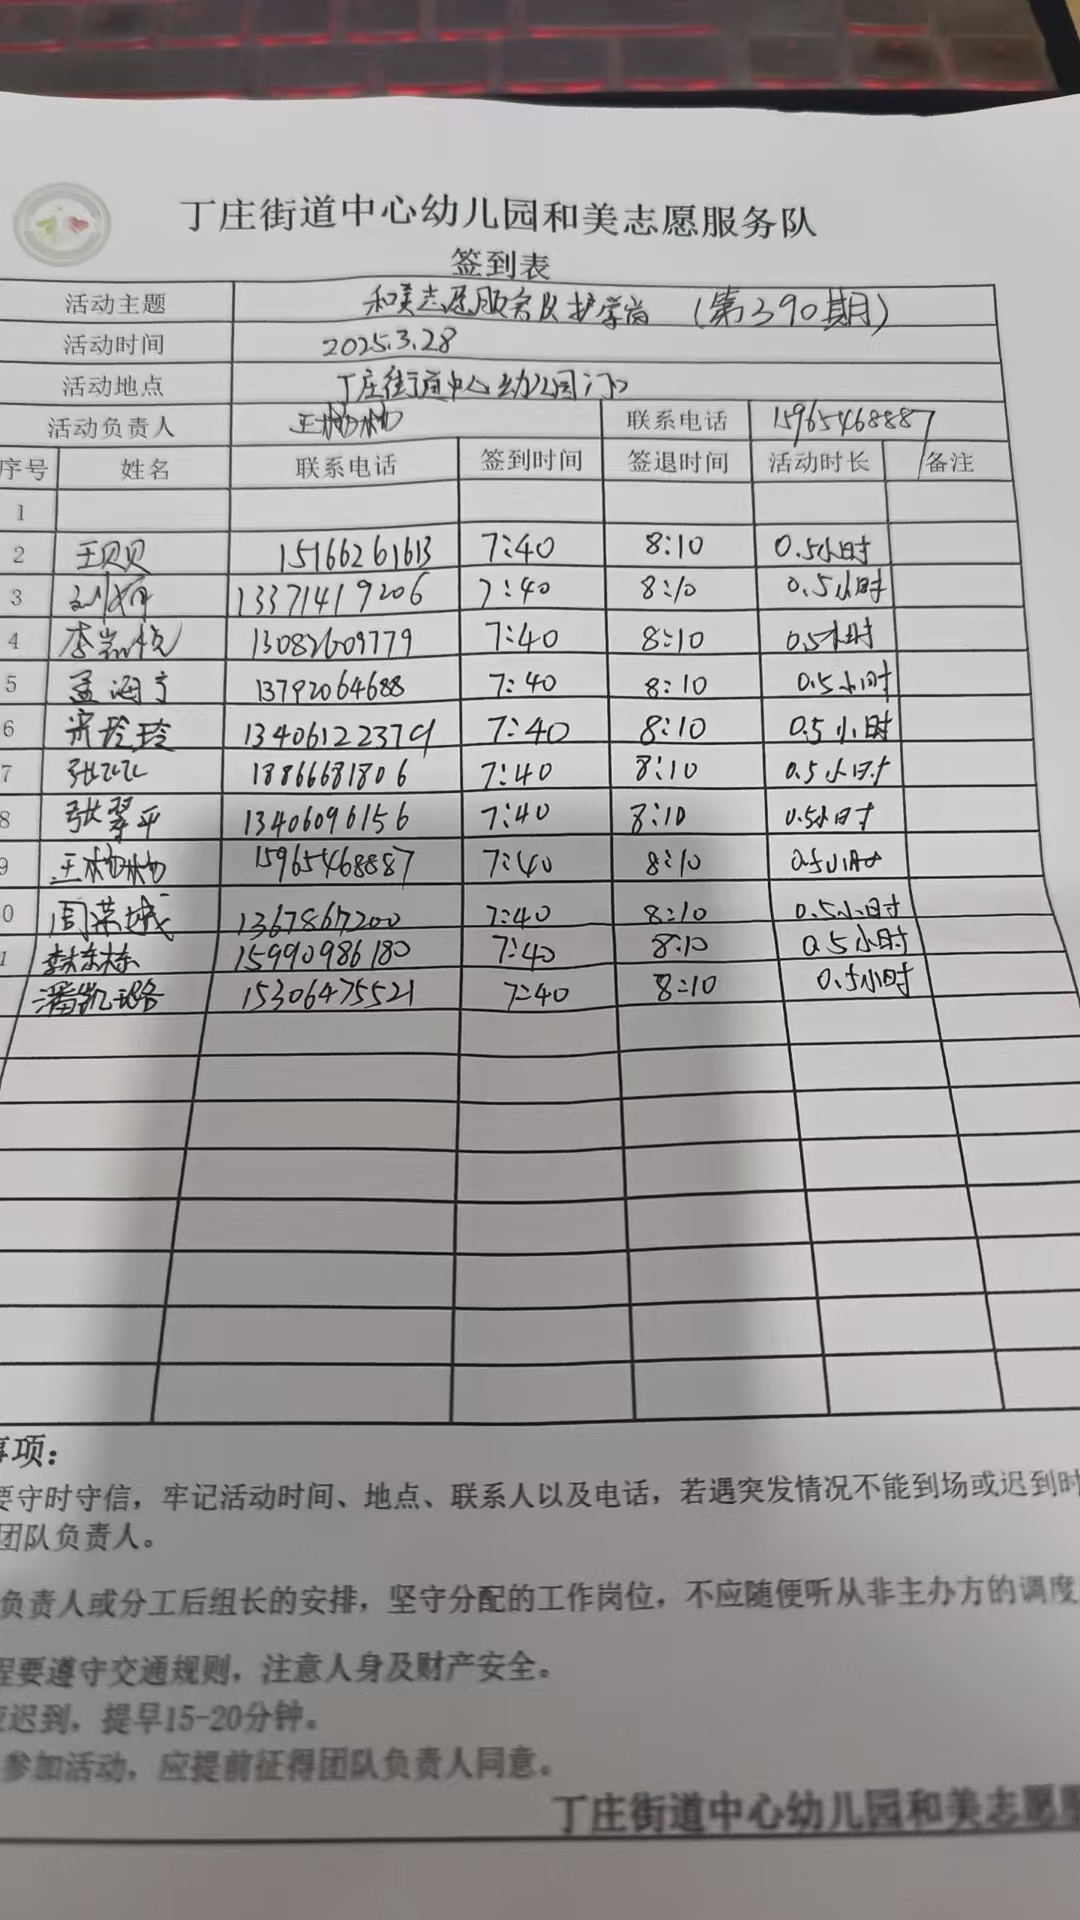 丁庄街道中心幼儿园和美志愿服务队
签到表
活动主题 和美志愿服务队护学岗 (第390期)
活动时间 2025.3.28
活动地点 丁庄街道中心幼儿园门口
活动负责人 王杨杨 联系电话 15965468887
序号 姓名 联系电话 签到时间 签退时间 活动时长 备注
1
2 王贝贝 15166261613 7:40 8:10 0.5小时
3 13371419206 7:40 8:10 0.5小时
4 13082609779 7:40 8:10 0.5小时
5 孟海宁 13792064688 7:40 8:10 0.5小时
6 宋玲玲 13406122379 7:40 8:10 0.5小时
7 18866681806 7:40 8:10 0.5小时
8 张翠平 13406096156 7:40 8:10 0.5小时
9 王杨杨 15965468887 7:40 8:10 0.5小时
0 周荣城 1367867200 7:40 8:10 0.5小时
1 李东东 15990986180 7:40 8:10 0.5小时
潘凯璐 15306475521 7:40 8:10 0.5小时
事项：
要守时守信，牢记活动时间、地点、联系人以及电话，若遇突发情况不能到场或迟到时
团队负责人。
负责人或分工后组长的安排，坚守分配的工作岗位，不应随便听从非主办方的调度
程要遵守交通规则，注意人身及财产安全。
迟到，提早15-20分钟。
参加活动，应提前征得团队负责人同意。
丁庄街道中心幼儿园和美志愿服